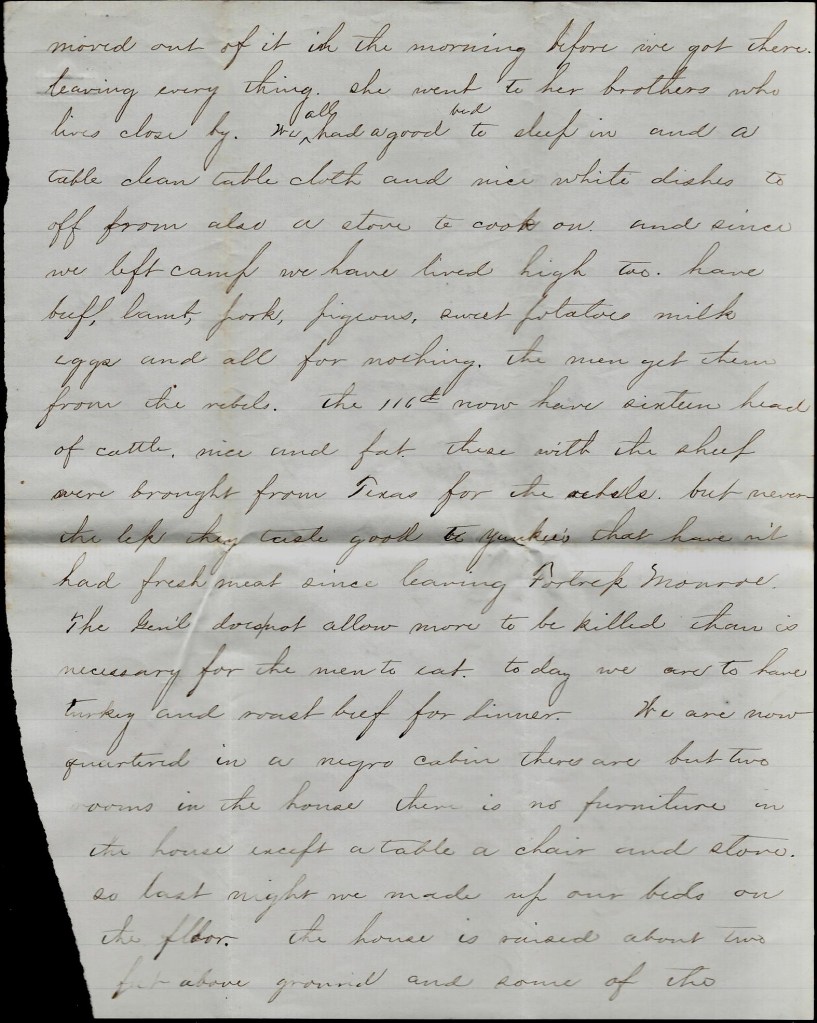 moved out of it in the morning before we got there.
leaving every thing. she went to her brothers who
lives close by. We all had a good bed to sleep in and a
table clean table cloth and nice white dishes to
off from also a stove to cook on. and since
we left camp we have lived high too. have
beef, lamb, pork, pigeons, sweet potatoes milk
eggs and all for nothing. the men get them
from the rebels. the 116th now have sixteen head
of cattle, nice and fat. these with the sheep
were brought from Texas for the rebels. but never
the less they taste good to Yankee's that have n't
had fresh meat since leaving Fortress Monroe.
The Gen'l does not allow more to be killed than is
necessary for the men to eat. to day we are to have
turkey and roast beef for dinner. We are now
quartered in a negro cabin there are but two
rooms in the house there is no furniture in
the house except a table a chair and stove.
so last night we made up our beds on
the floor. the house is raised about two
feet above ground and some of the